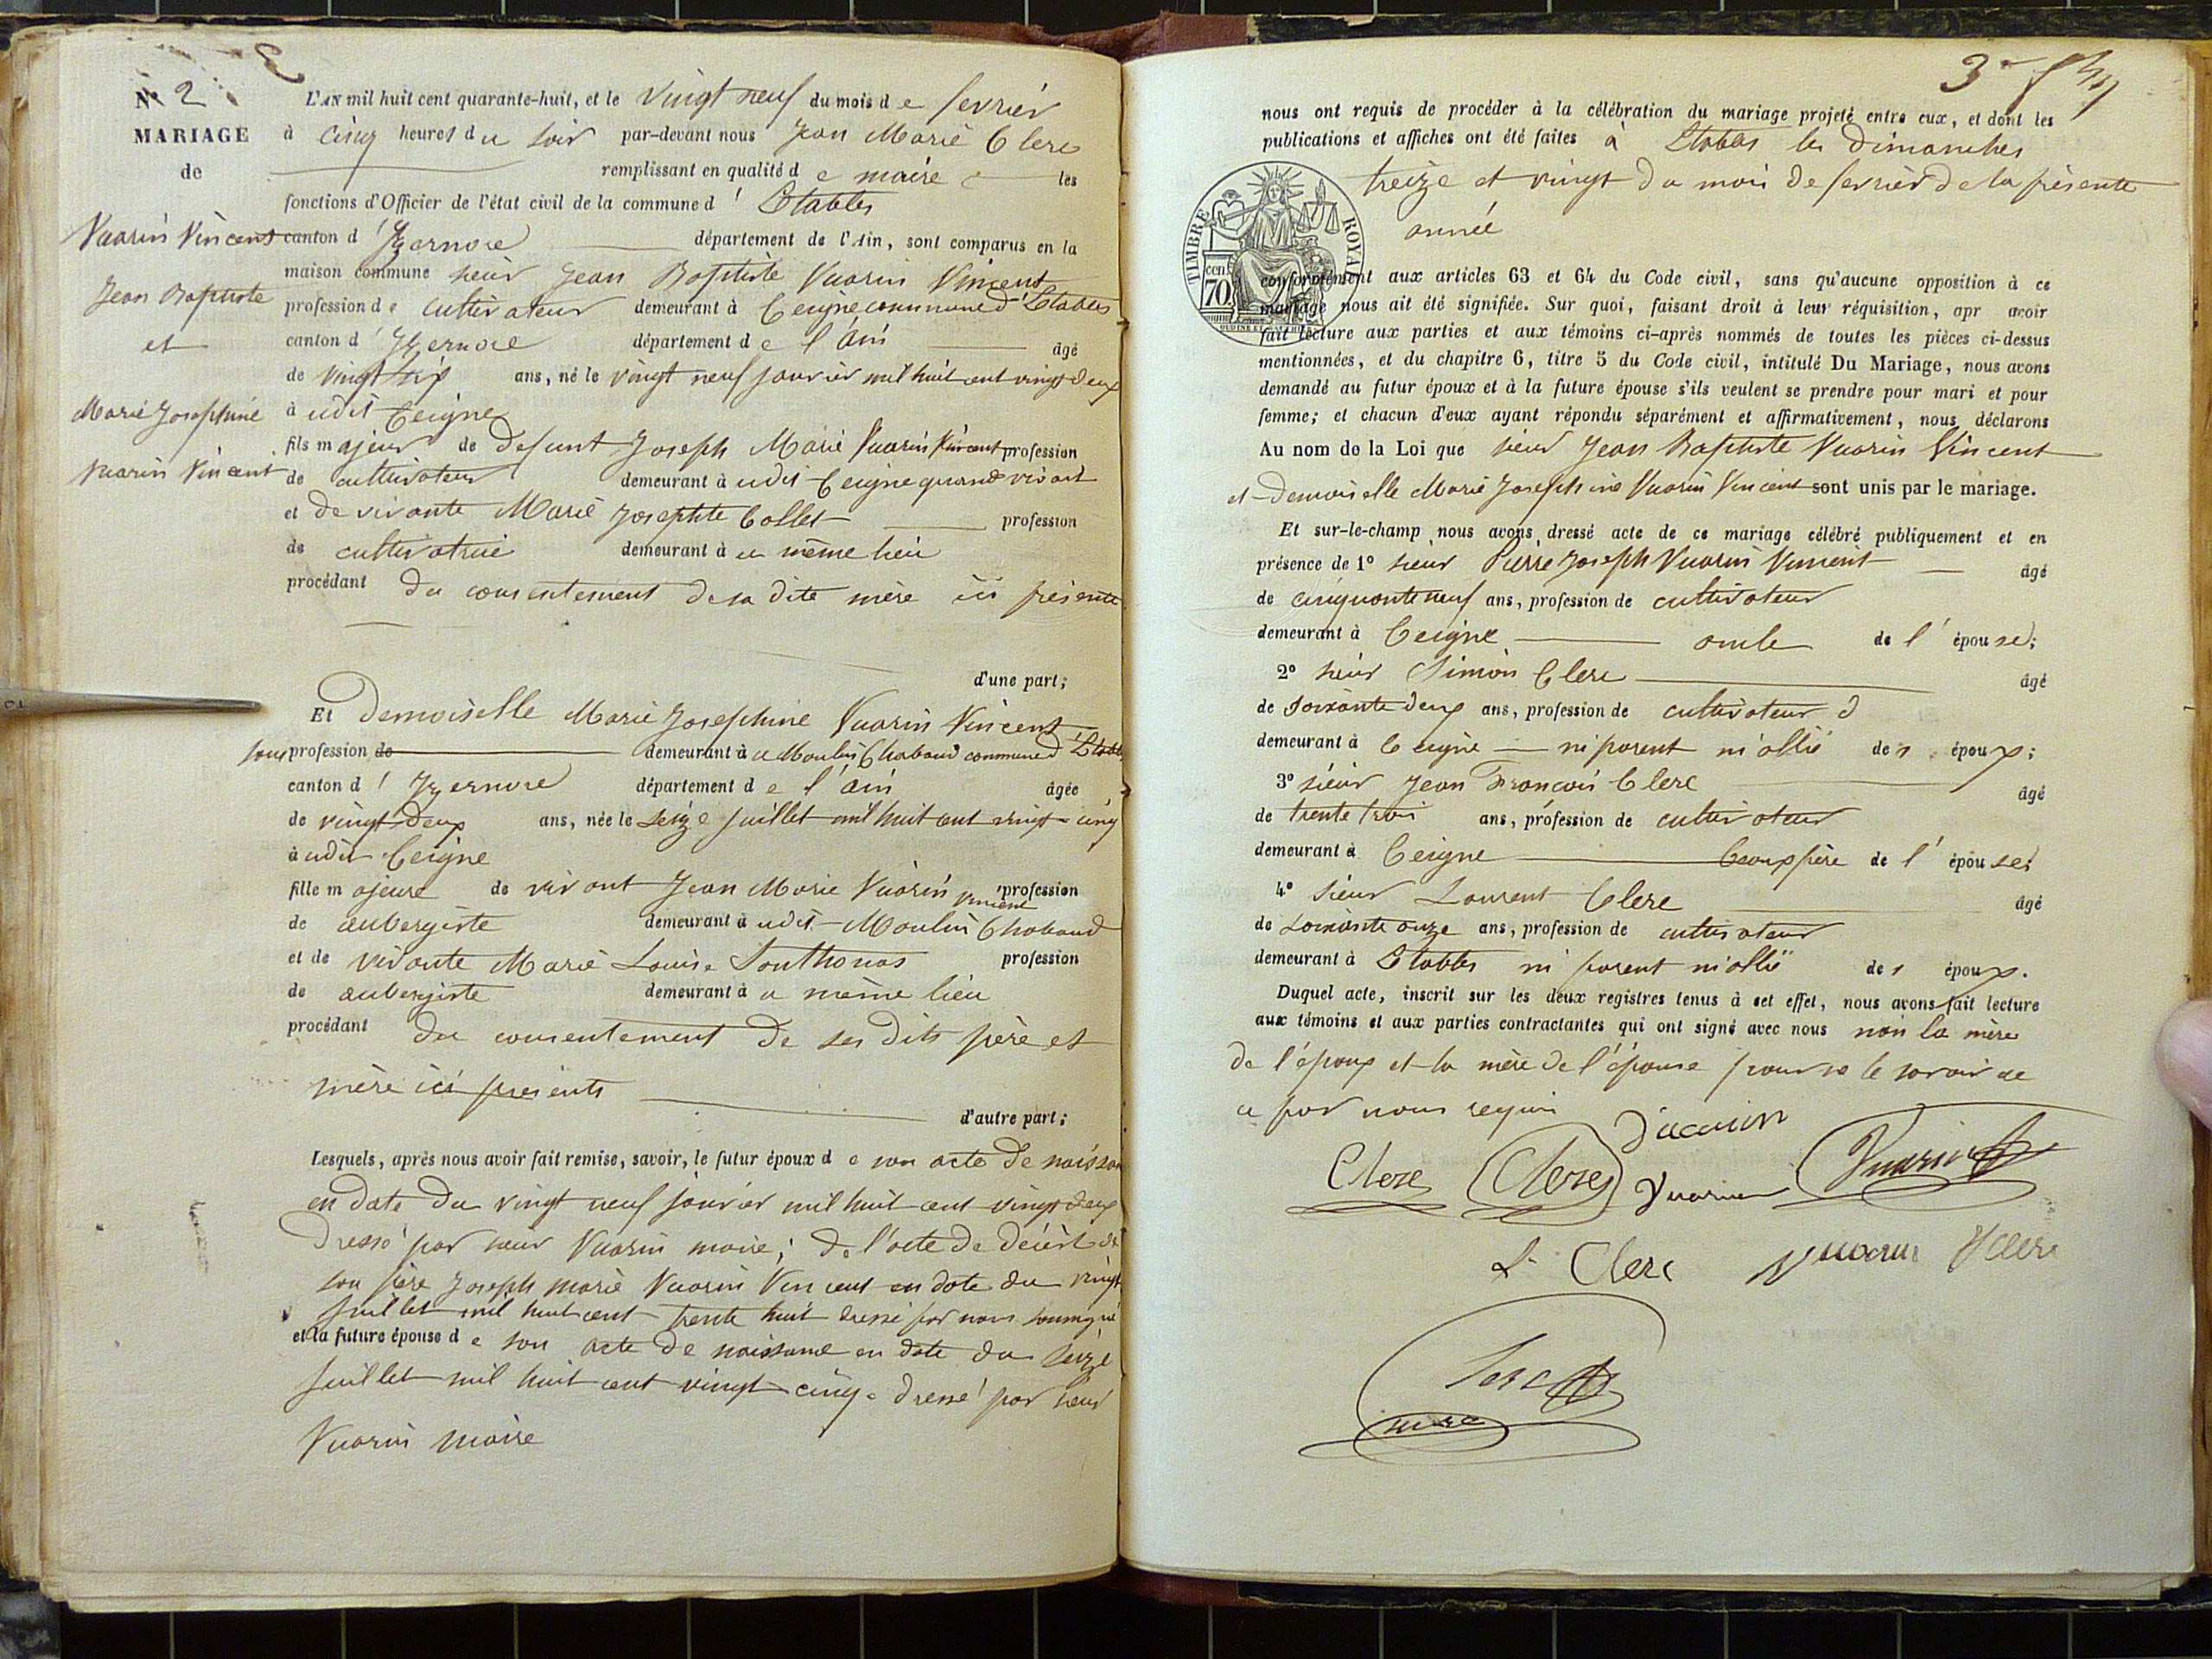 Nº 2
MARIAGE
de
Vuarin Vincent
Jean Baptiste
et
Marie Josephine
Vuarin Vincent
L'AN mil huit cent quarante-huit, et le vingt neuf du mois de fevrier
à cinq heures du soir par-devant nous Jean Marie Clerc
remplissant en qualité de maire les
fonctions d'Officier de l'état civil de la commune d'Etables
canton d'Izernore département de l'Ain, sont comparus en la
maison commune sieur Jean Baptiste Vuarin Vincent
profession de cultivateur demeurant à Ceigne commune d'Etables
canton d'Izernore département de l'ain âgé
de vingt six ans, né le vingt neuf janvier mil huit cent vingt deux
à udit Ceigne
fils majeur de defunt Joseph Marie Vuarin Vincent profession
de cultivateur demeurant à udit Ceigne quand vivait
et de vivante Marie Josephte Collet profession
de cultivatrice demeurant à u même lieu
procédant du consentement de sa dite mère ici présente
d'une part;
Et Demoiselle Marie Josephine Vuarin Vincent
sans profession de demeurant à u Moulin Chabaud commune d'Etables
canton d'Izernore département de l'ain âgée
de vingt deux ans, née le seize juillet mil huit cent vingt cinq
à udit Ceigne
fille majeure de vivant Jean Marie Vuarin Vincent profession
de aubergiste demeurant à udit Moulin Chabaud
et de vivante Marie Louise Sonthonas profession
de aubergiste demeurant à u même lieu
procédant du consentement de ses dits père et
mère ici présents
d'autre part;
Lesquels, après nous avoir fait remise, savoir, le futur époux de son acte de naissan
en date du vingt neuf janvier mil huit cent vingt deux
dressé par sieur Vuarin maire; de l'acte de décèst de
son père Joseph marie Vuarin Vincent en date du vingt
juillet mil huit cent trente huit dressé par nous soussigné
et la future épouse de son acte de naissance en date du seize
juillet mil huit cent vingt cinq dressé par sieur
Vuarin maire
3e
nous ont requis de procéder à la célébration du mariage projeté entre eux, et dont les
publications et affiches ont été faites à Etables les dimanches
treize et vingt du mois de fevrier de la présente
année
TIMBRE ROYAL
70 cent.
conformément aux articles 63 et 64 du Code civil, sans qu'aucune opposition à ce
mariage nous ait été signifiée. Sur quoi, faisant droit à leur réquisition, apr avoir
fait lecture aux parties et aux témoins ci-après nommés de toutes les pièces ci-dessus
mentionnées, et du chapitre 6, titre 5 du Code civil, intitulé Du Mariage, nous avons
demandé au futur époux et à la future épouse s'ils veulent se prendre pour mari et pour
femme; et chacun d'eux ayant répondu séparément et affirmativement, nous déclarons
Au nom de la Loi que sieur Jean Baptiste Vuarin Vincent
et Demoiselle Marie Josephine Vuarin Vincent sont unis par le mariage.
Et sur-le-champ nous avons dressé acte de ce mariage célébré publiquement et en
présence de 1º sieur Pierre Joseph Vuarin Vincent âgé
de cinquante neuf ans, profession de cultivateur
demeurant à Ceigne oncle de l'épouse;
2º sieur Simon Clerc âgé
de soixante deux ans, profession de cultivateur d
demeurant à Ceigne ni parent ni allié des époux;
3º sieur Jean François Clerc âgé
de trente trois ans, profession de cultivateur
demeurant à Ceigne beaux père de l'épouse;
4º sieur Laurent Clerc âgé
de soixante onze ans, profession de cultivateur
demeurant à Etables ni parent ni allié des époux.
Duquel acte, inscrit sur les deux registres tenus à cet effet, nous avons fait lecture
aux témoins et aux parties contractantes qui ont signé avec nous non la mère
de l'époux et la mère de l'épouse pour ne le savoir de
ce par nous requis
Clerc Clerc Vuarin Vuarin
L. Clerc Vuarin Clerc
Clerc
maire